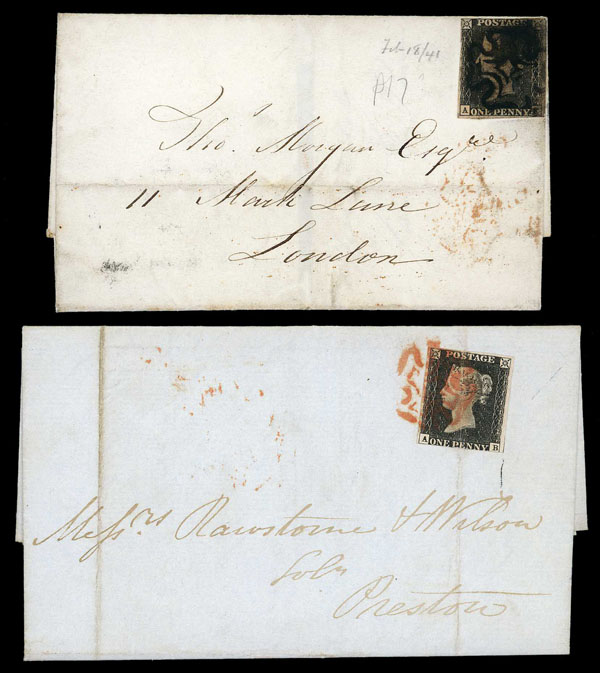 POSTAGE
Feb 18/41
A ONE PENNY
Tho.s Morgan Esq.re
11 Mark Lane
London
POSTAGE
A ONE PENNY B
Mess.rs Rawstorne & Wilson
Sol.rs
Preston